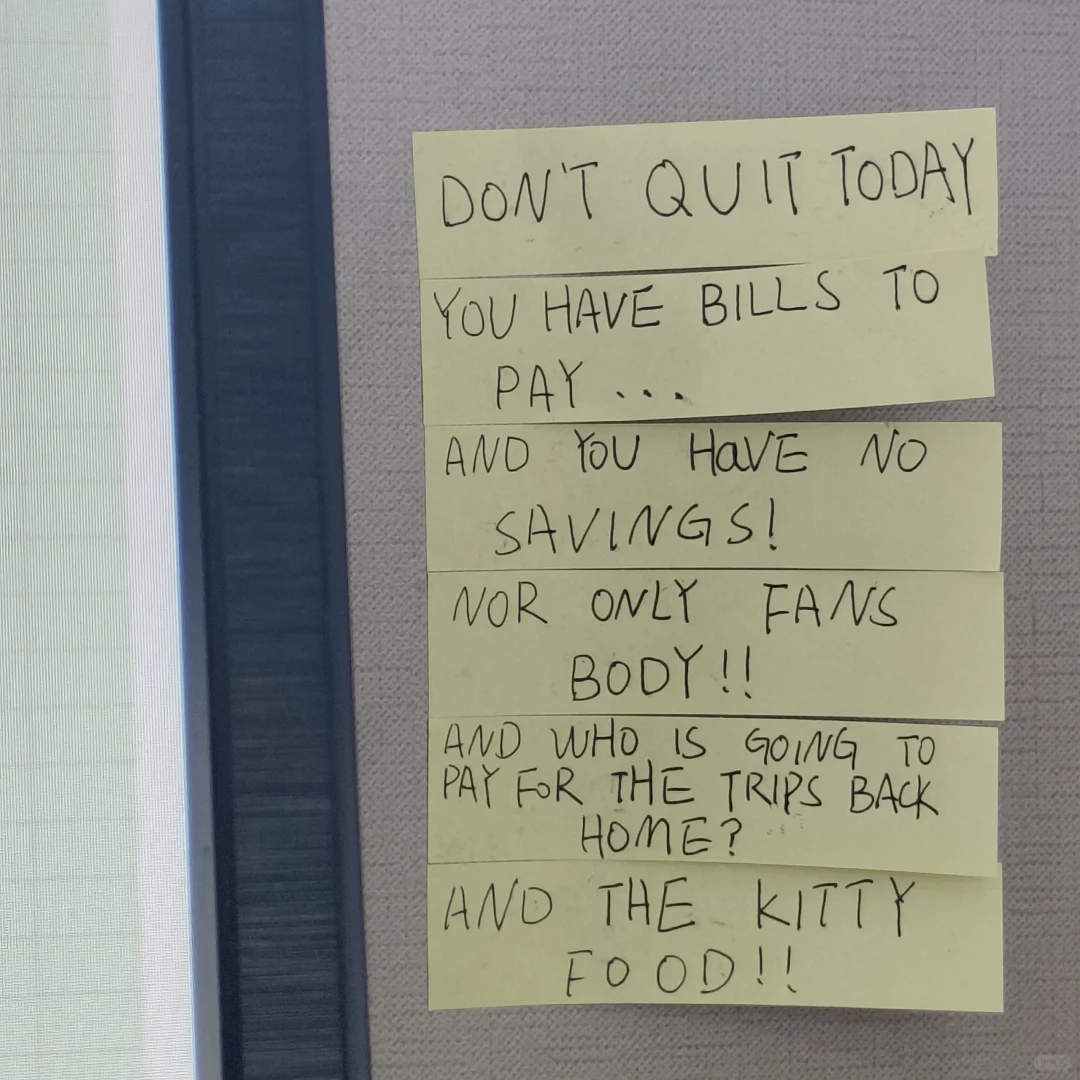 DON'T QUIT TODAY
YOU HAVE BILLS TO
PAY ...
AND YOU HaVE NO
SAVINGS!
NOR ONLY FANS
BODY!!
AND WHO IS GOING TO
PAY FOR THE TRIPS BACK
HOME?
AND THE KITTY
FOOD!!